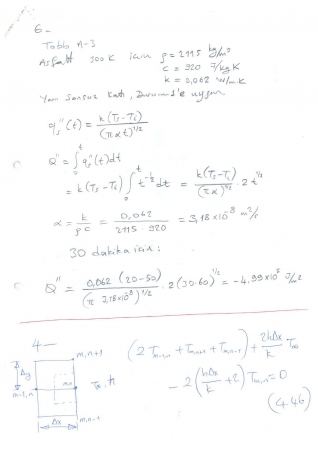 6-
Tablo A-3
Asfalt 300K için ρ = 2115 kg/m³
c = 920 J/kgK
k = 0,062 W/m.K
Yarı sonsuz katı, Durum 1'e uygun
q″s(t) = k(Ts-Ti) / (παt)^1/2
Q″ = ∫₀ᵗ q″s(t)dt
= k(Ts-Ti) ∫₀ᵗ t^-1/2 dt = k(Ts-Ti) / (πα)^1/2 · 2 t^1/2
α = k / ρc = 0,062 / 2115 · 920 = 3,18 x10⁻⁸ m²/s
30 dakika için:
Q″ = 0,062 (20-50) / (π 3,18x10⁻⁸)^1/2 · 2(30·60)^1/2 = -4,99x10⁵ J/m²
4-
m,n+1
Δy
m-1,n
m,n
T∞, h
Δx
m,n-1
(2Tm-1,n + Tm,n+1 + Tm,n-1) + 2hΔx/k T∞
- 2(hΔx/k + 2) Tm,n = 0
(4.46)